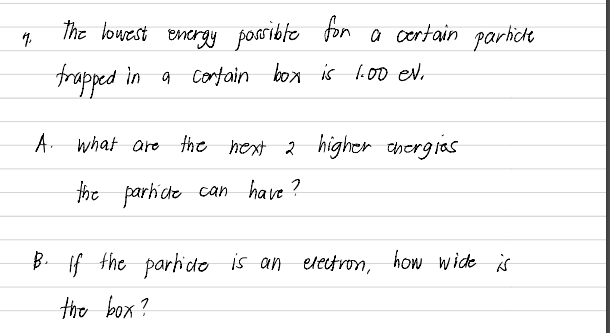 9. The lowest energy possible for a certain particle
trapped in a certain box is 1.00 eV.
A. What are the next 2 higher energies
the particle can have?
B. If the particle is an electron, how wide is
the box?